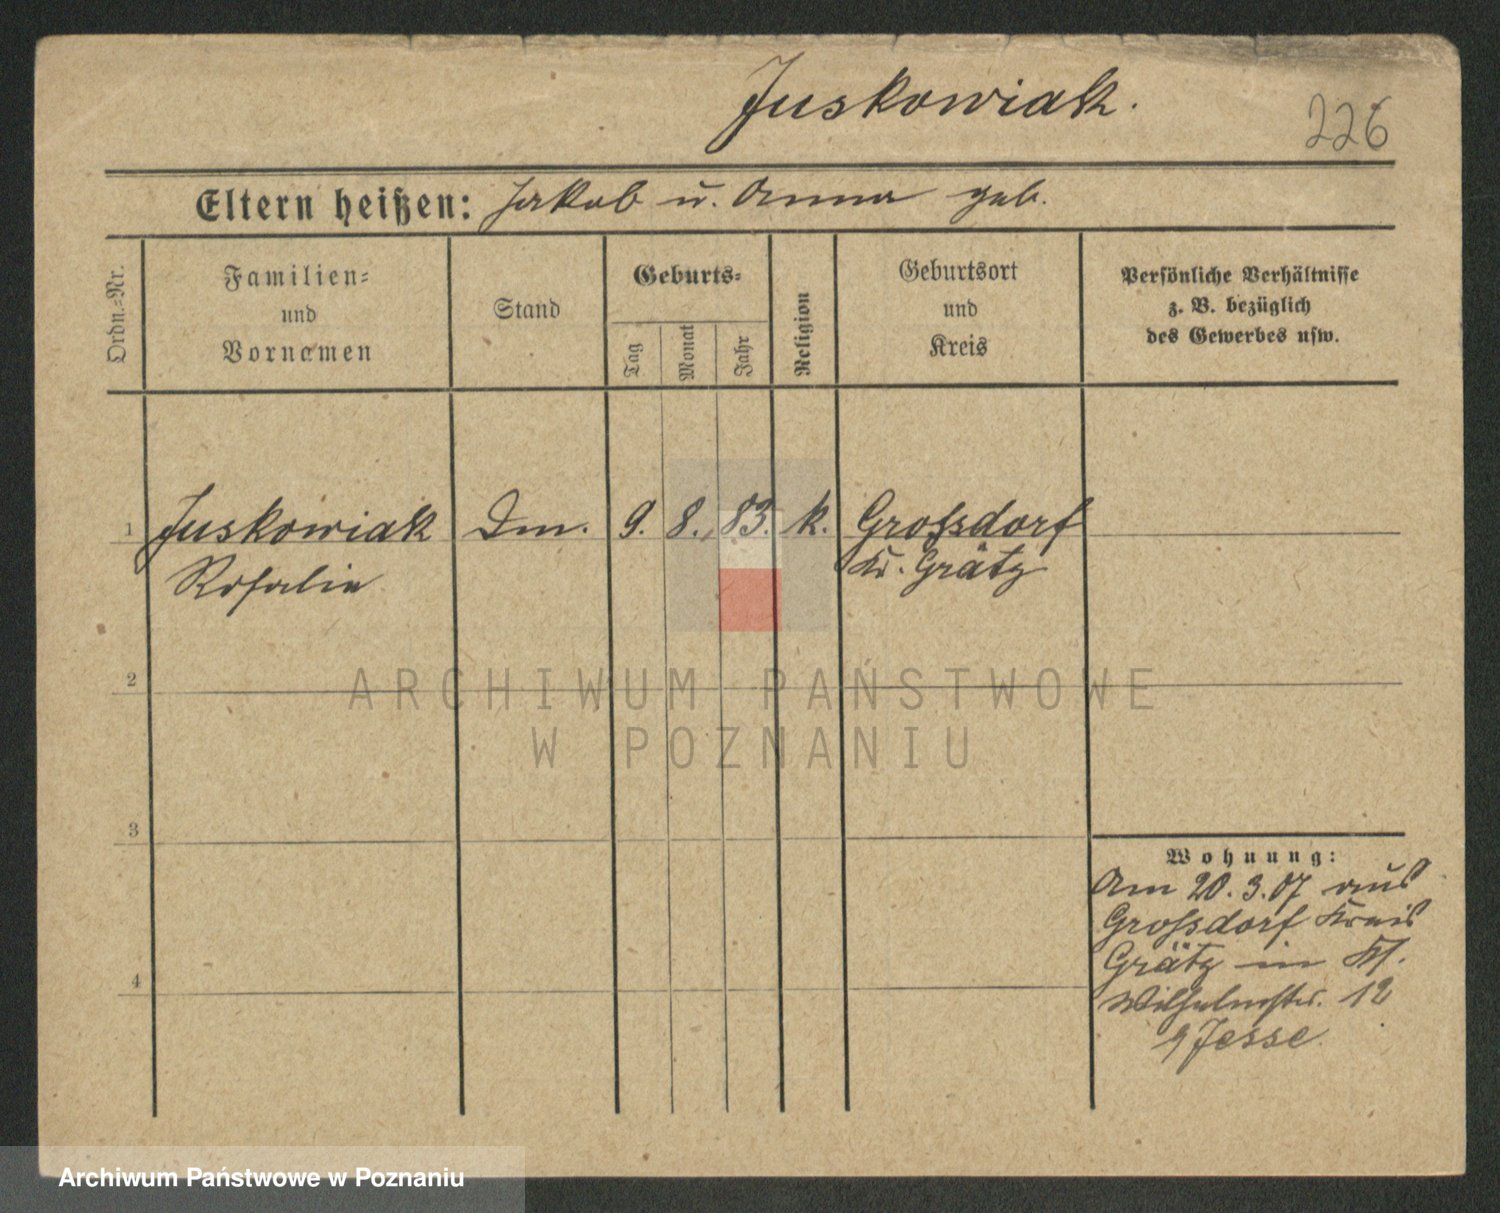 Juskowiak.
226
Eltern heißen: Jakob u. Anna geb.
Ordn.=Nr.
Familien=
und
Vornamen
Stand
Geburts=
Tag
Monat
Jahr
Religion
Geburtsort
und
Kreis
Persönliche Verhältnisse
z. B. bezüglich
des Gewerbes usw.
1 Juskowiak Dm. 9. 8. 83. k. Grossdorf
Rosalie Kr. Grätz
2
ARCHIWUM PAŃSTWOWE
W POZNANIU
3
Wohnung:
Am 20.3.07 aus
Grossdorf Kreis
4 Grätz in
Wilhelmstr. 12
Jesse.
Archiwum Państwowe w Poznaniu